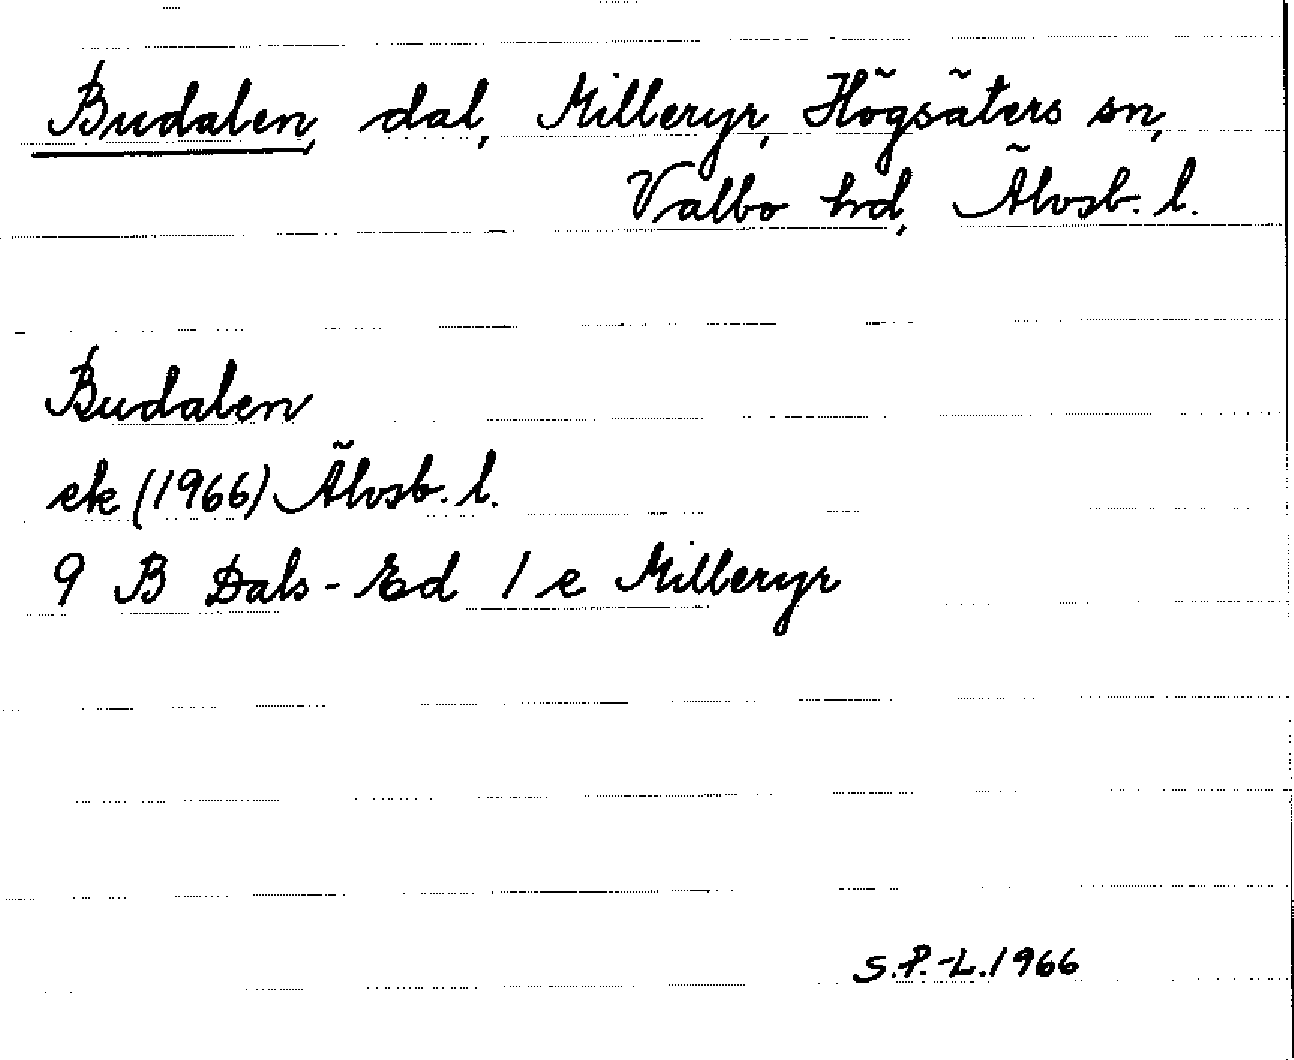 Budalen, dal, Milleryr, Högsäters sn,
Valbo hd, Älvsb. l.
Budalen
ek (1966) Älvsb. l.
9 B Dals-Ed 1 e Milleryr
S.P.-L. 1966